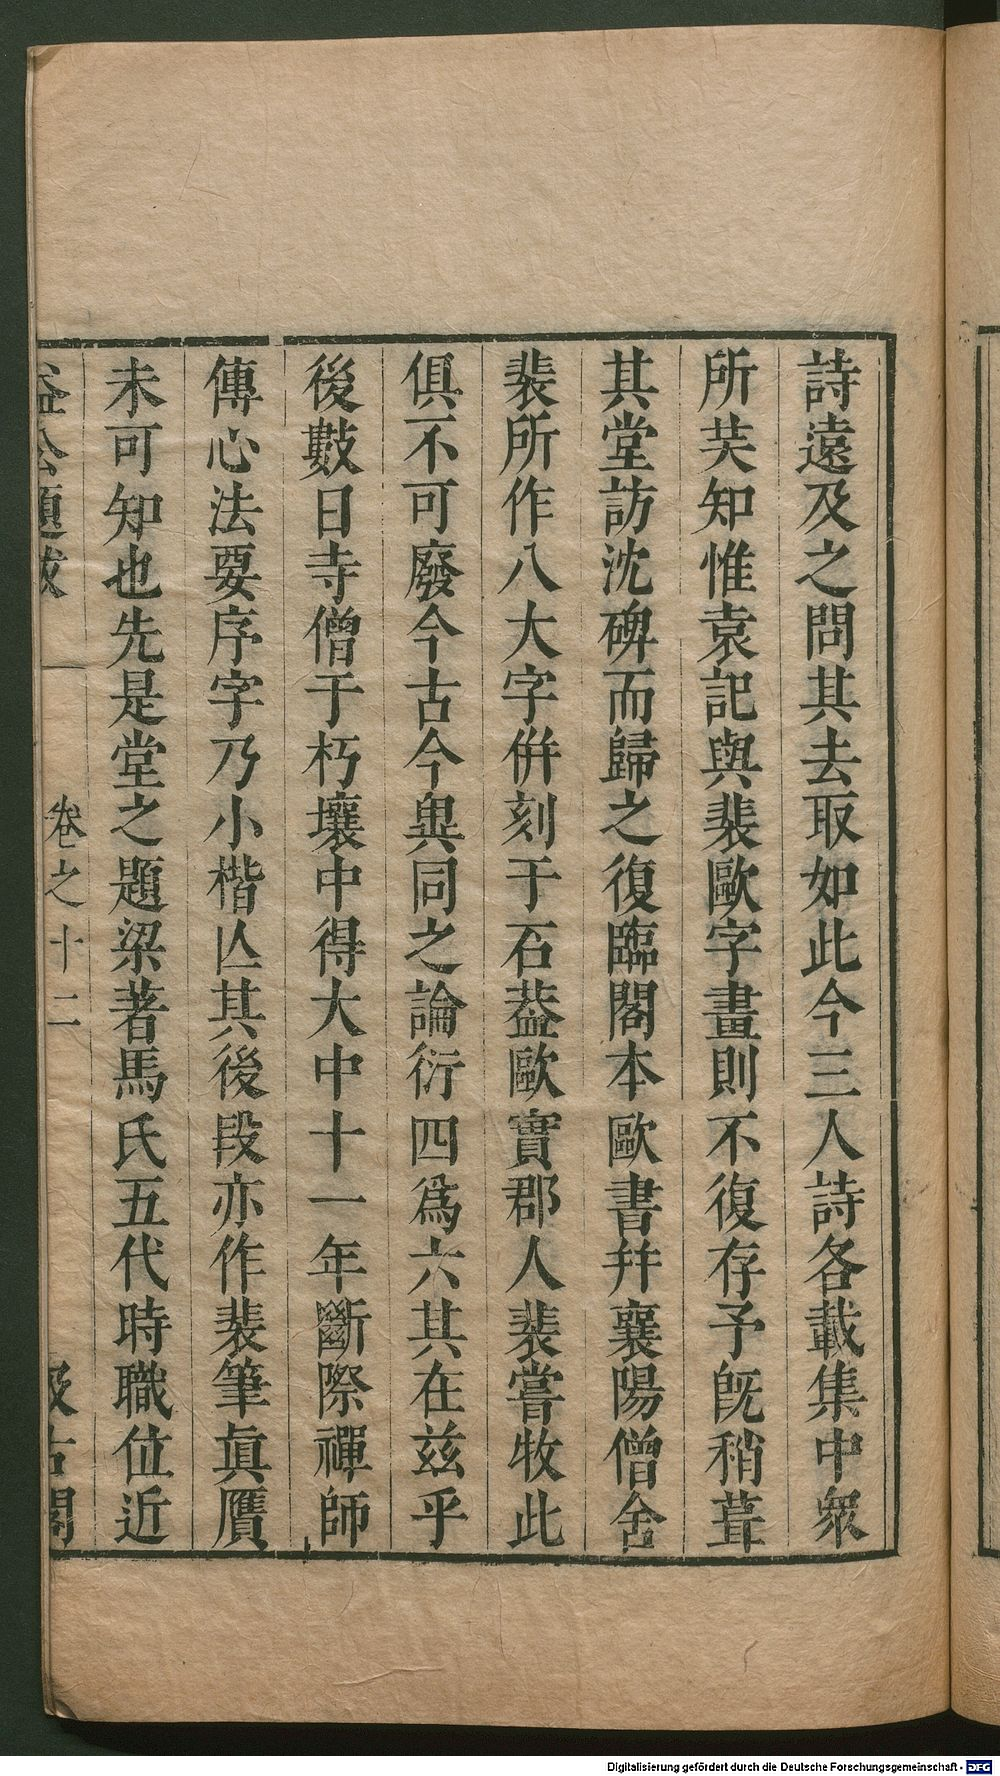 詩遠及之問其去取如此今三人詩各載集中衆
所共知惟袁記與裴歐字畫則不復存予旣稍葺
其堂訪沈碑而歸之復臨閣本歐書并襄陽僧舍
裴所作八大字併刻于石葢歐實郡人裴嘗牧此
俱不可廢今古今異同之論衍四爲六其在兹乎
後數日寺僧于朽壤中得大中十一年斷際禪師
傳心法要序字乃小楷亾其後段亦作裴筆眞贋
未可知也先是堂之題梁著馬氏五代時職位近
益公題跋 卷之十二 汲古閣
Digitalisierung gefördert durch die Deutsche Forschungsgemeinschaft - DFG